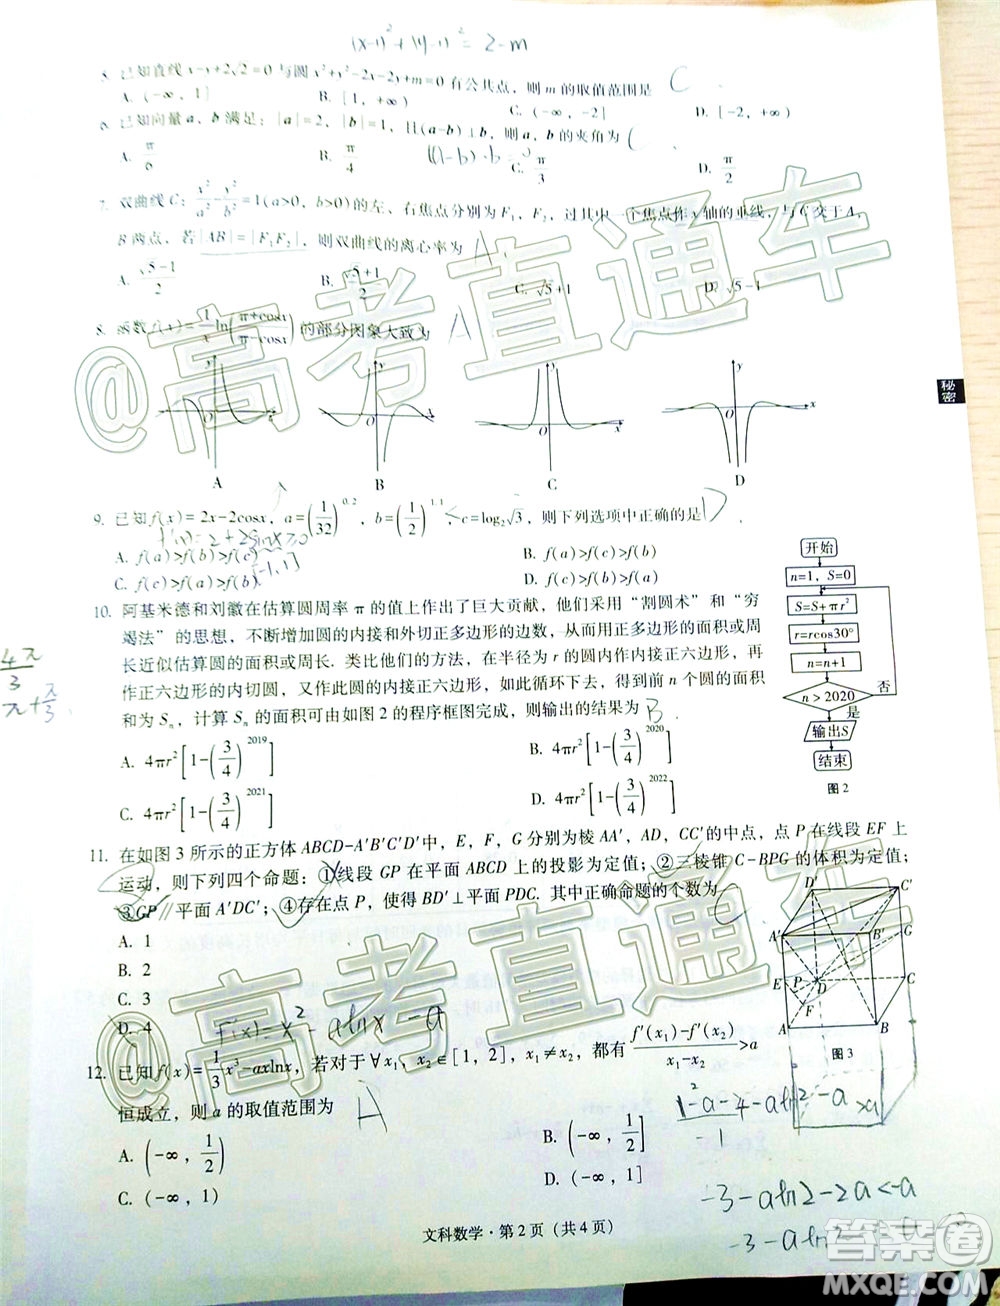 (x-1)² + (y-1)² = 2-m
5. 已知直线 x-y+2√2=0 与圆 x²+y²-2x-2y+m=0 有公共点，则 m 的取值范围是 C
A. (-∞, 1]  B. [1, +∞)  C. (-∞, -2]  D. [-2, +∞)
6. 已知向量 a、b 满足：|a|=2, |b|=1, 且(a-b)⊥b，则 a、b 的夹角为 C
A. π/6  B. π/4  C. π/3  D. π/2
7. 双曲线 C：x²/a²-y²/b²=1(a>0, b>0)的左、右焦点分别为 F₁、F₂，过其中一个焦点作 x 轴的垂线，与 C 交于 A、
B 两点，若|AB|=|F₁F₂|，则双曲线的离心率为 A
A. (√5-1)/2  B. (√5+1)/2  C. √5+1
8. 函数 f(x)=1/x ln((π+cosx)/(π-cosx))的部分图象大致为 A
y y y y
O x O x O x O x
A B C D
9. 已知 f(x)=2x-2cosx, a=(1/32)^0.2, b=(1/2)^1.1, c=log₂√3, 则下列选项中正确的是 D
f'(x)=2+2sinx≥0
A. f(a)>f(b)>f(c)  B. f(a)>f(c)>f(b)
[-1,1]
C. f(c)>f(a)>f(b)  D. f(b)>f(c)>f(a)
10. 阿基米德和刘徽在估算圆周率 π 的值上作出了巨大贡献，他们采用“割圆术”和“穷
竭法”的思想，不断增加圆的内接和外切正多边形的边数，从而用正多边形的面积或周
长近似估算圆的面积或周长. 类比他们的方法，在半径为 r 的圆内作内接正六边形，再
作正六边形的内切圆，又作此圆的内接正六边形，如此循环下去，得到前 n 个圆的面积
和为 Sₙ，计算 Sₙ 的面积可由如图 2 的程序框图完成，则输出的结果为 B
A. 4πr²[1-(3/4)^2019]  B. 4πr²[1-(3/4)^2020]
C. 4πr²[1-(3/4)^2021]  D. 4πr²[1-(3/4)^2022]
开始
n=1, S=0
S=S+πr²
r=rcos30°
n=n+1
n>2020
否
是
输出S
结束
图 2
11. 在如图 3 所示的正方体 ABCD-A'B'C'D'中，E，F，G 分别为棱 AA'，AD，CC'的中点，点 P 在线段 EF 上
运动，则下列四个命题：①线段 GP 在平面 ABCD 上的投影为定值；②三棱锥 C-BPG 的体积为定值；
③GP∥平面 A'DC'；④存在点 P，使得 BD'⊥平面 PDC. 其中正确命题的个数为 C
A. 1
B. 2
C. 3
D. 4
D' C' A' B' G E P D C F A B
图 3
f'(x)=x²-alnx-a
12. 已知 f(x)=1/3x³-axlnx, 若对于∀x₁, x₂∈[1, 2], x₁≠x₂, 都有 (f'(x₁)-f'(x₂))/(x₁-x₂)>a
恒成立，则 a 的取值范围为 A
A. (-∞, 1/2)  B. (-∞, 1/2]
C. (-∞, 1)  D. (-∞, 1]
-3-aln2-2a<-a
文科数学·第 2 页（共 4 页）
秘密
@高考直通车
@高考直通车
答案卷
MXQE.COM